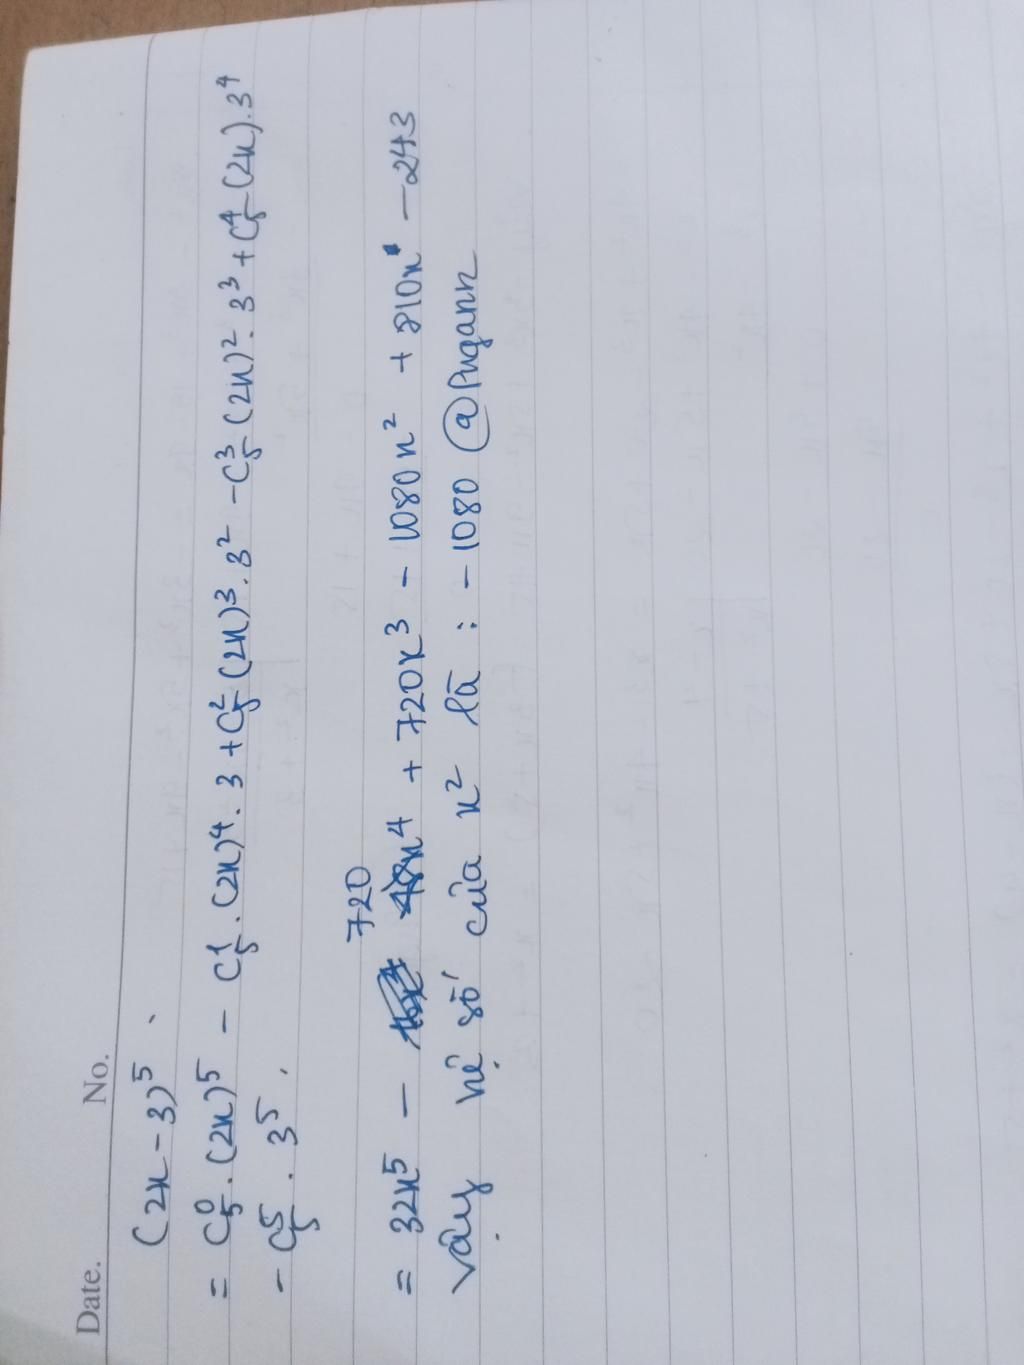 Date. No.
(2x - 3)⁵
= C₅⁰.(2x)⁵ - C₅¹.(2x)⁴.3 + C₅²(2x)³.3² - C₅³(2x)².3³ + C₅⁴(2x).3⁴
- C₅⁵.3⁵.
720
= 32x⁵ - x⁴ + 720x³ - 1080x² + 810x - 243
Vậy hệ số của x² là : -1080 @Pngann